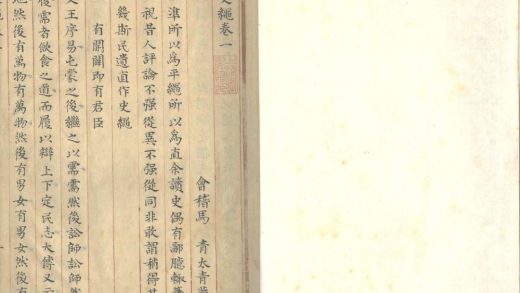 繩卷一
會稽馬 青太青
準所以為平繩所以為直余讀史偶有鄙臆輒
視昔人評論不强從異不强從同非敢謂稍得
幾斯民遺直作史繩
有開闢即有君臣
王序易屯蒙之後繼之以需需然後訟師訟師
後需者飲食之道而履以辯上下定民志大傳又
然後有萬物有萬物然後有男女有男女然